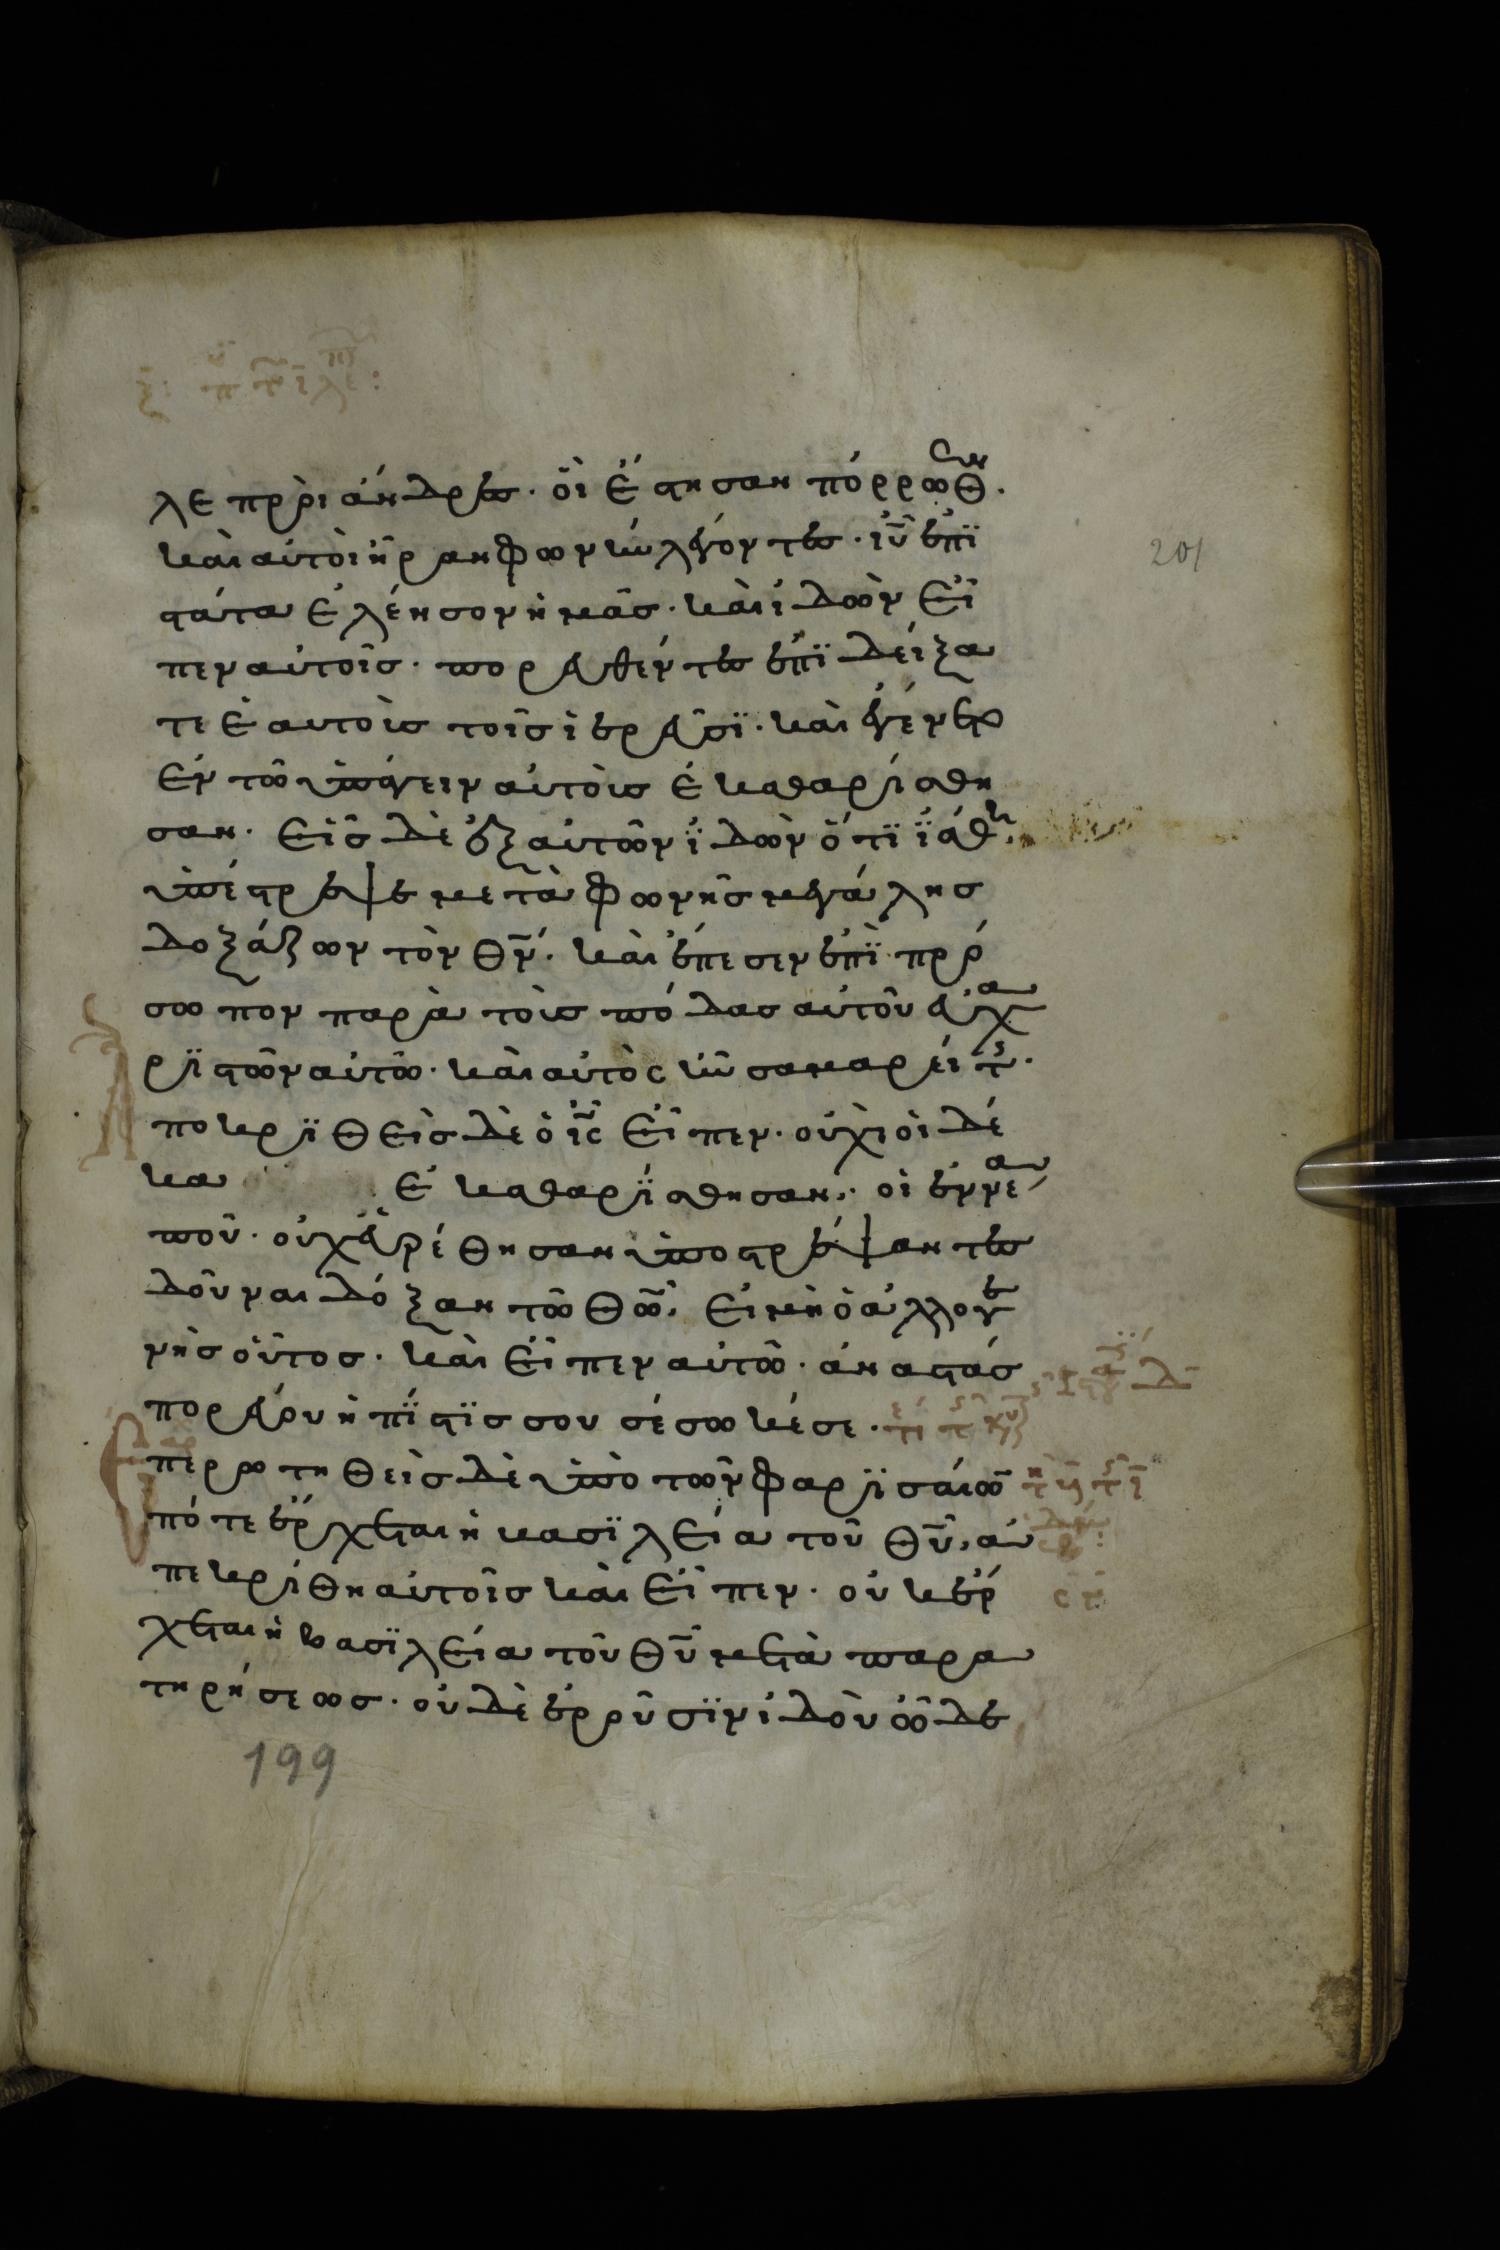 λεπροὶ ἄνδρες· οἳ ἔστησαν πόρρωθεν·
καὶ αὐτοὶ ἦραν φωνὴν λέγοντες· ιυ ἐπϊ
στάτα ἐλέησον ἡμᾶς· καὶ ἰδὼν εἶ
πεν αὐτοῖς· πορευθέντες ἐπϊδείξα
τε ἑαυτοὺς τοῖς ἱερεῦσϊ· καὶ ἐγένετο
ἐν τῶ ὑπάγειν αὐτοὺς ἐκαθαρίσθη
σαν· εἷς δὲ ἐξ αὐτῶν ϊδὼν ὅτϊ ϊάθη·
ὑπέστρεψε μετὰ φωνῆς μεγάλης
δοξάζων τὸν θν· καὶ ἔπεσεν ἐπϊ πρό
σωπον παρὰ τοὺς πόδας αὐτοῦ εὐχα
ρϊστῶν αὐτῶ· καὶ αὐτὸς ἦν σαμαρείτης·
ποκρϊθεὶς δὲ ὁ ις εἶπεν· οὐχὶ οἱ δέ
κα ἐκαθαρϊσθησαν· οἱ ἐννέα
ποῦ· οὐχ εὑρέθησαν ὑποστρέψαντες
δοῦναι δόξαν τῶ θῶ· εἰ μὴ ὁ ἀλλογε
νὴς οὗτος· καὶ εἶπεν αὐτῶ· ἀναστάς
πορεύου ἡ πϊστϊς σου σέσωκέ σε·
περρωτηθεὶς δὲ ὑπὸ τῶν φαρϊσαίων
πότε ἔρχεται ἡ βασϊλεία τοῦ θυ, ἀ
πεκρίθη αὐτοῖς καὶ εἶπεν· οὐκ ἔρ
χεται ἡ βασϊλεία τοῦ θυ μετὰ παρα
τηρήσεως· οὐδὲ ἐροῦσϊν ἰδοὺ ὧδε
199
201